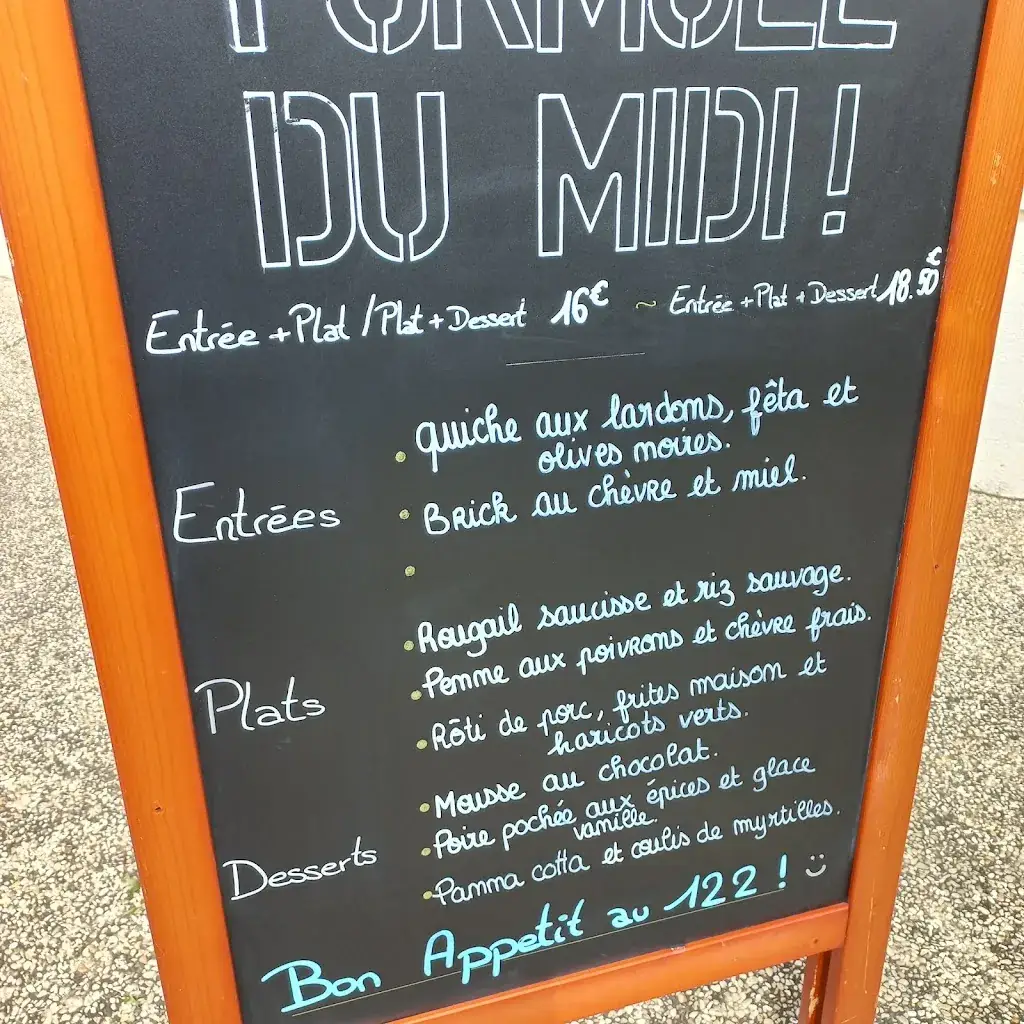 FORMULE
DU MIDI !
Entrée + Plat / Plat + Dessert 16€ ~ Entrée + Plat + Dessert 18.50€
Entrées
• quiche aux lardons, fêta et
olives noires.
• Brick au chèvre et miel.
•
Plats
• Rougail saucisse et riz sauvage.
• Penne aux poivrons et chèvre frais.
• Rôti de porc, frites maison et
haricots verts.
Desserts
• Mousse au chocolat.
• Poire pochée aux épices et glace
vanille.
• Panna cotta et coulis de myrtilles.
Bon Appetit au 122 ! :)